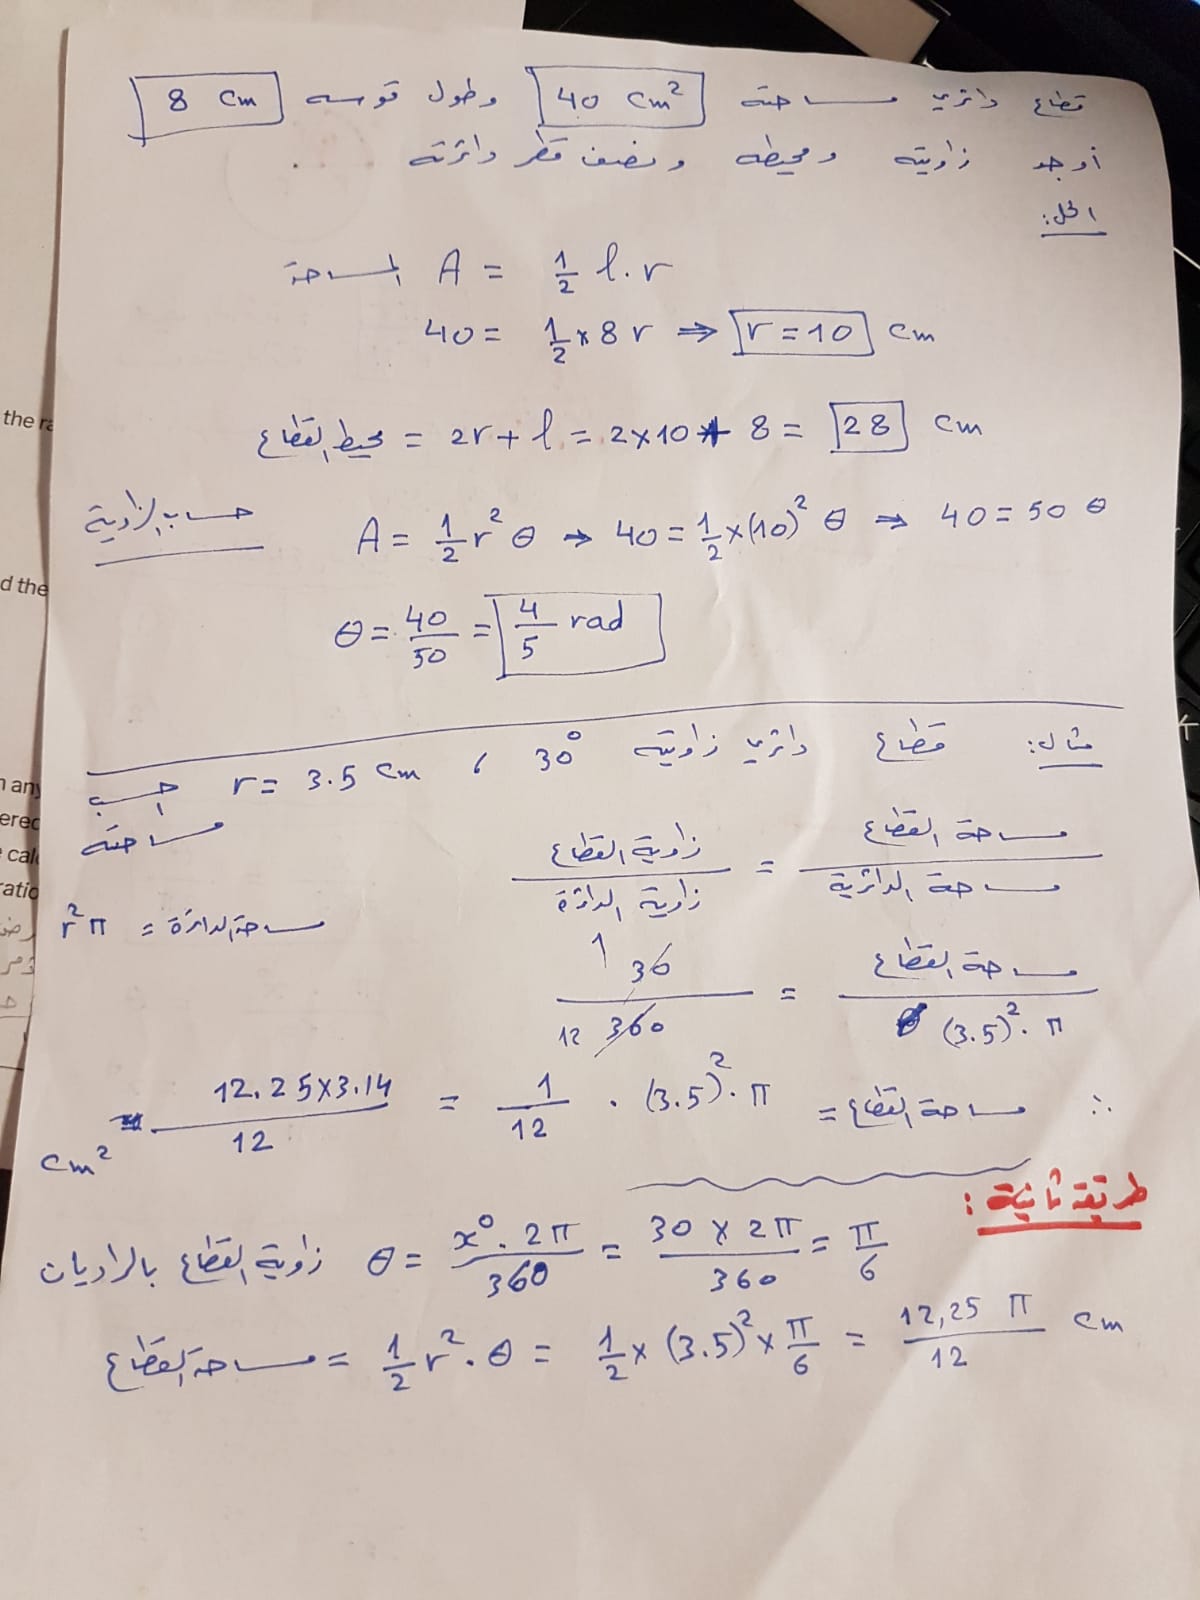 قطاع دائري مساحته 40 cm² وطول قوسه 8 cm
أوجد زاويته ومحيطه ونصف قطر دائرته .
الحل:
المساحة A = 1/2 l.r
40 = 1/2 × 8 r ⇒ r = 10 cm
محيط القطاع = 2r + l = 2×10 + 8 = 28 cm
حساب الزاوية
A = 1/2 r² θ → 40 = 1/2 × (10)² θ ⇒ 40 = 50 θ
θ = 40/50 = 4/5 rad
مثال: قطاع دائري زاويته 30° ، r = 3.5 cm احسب
مساحته
مساحة القطاع / مساحة الدائرية = زاوية القطاع / زاوية الدائرة
مساحة الدائرة = r²π
مساحة القطاع / (3.5)².π = 30/360 1 12
∴ مساحة القطاع = 1/12 . (3.5)².π = 12.25×3.14 / 12 cm²
طريقة ثانية:
زاوية القطاع بالراديان θ = x°.2π / 360 = 30 × 2π / 360 = π/6
مساحة القطاع = 1/2 r².θ = 1/2 × (3.5)² × π/6 = 12,25 π / 12 cm
the ra
d the
n any
ered
cal
ratio